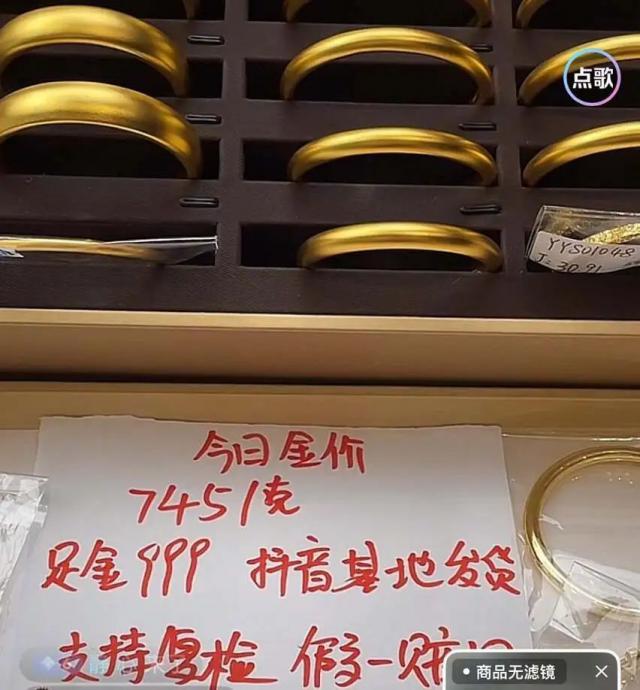 点歌
YYS01048
J: 30.91
今日金价
745/克
足金999 抖音基地发货
支持复检 假一赔
商品无滤镜